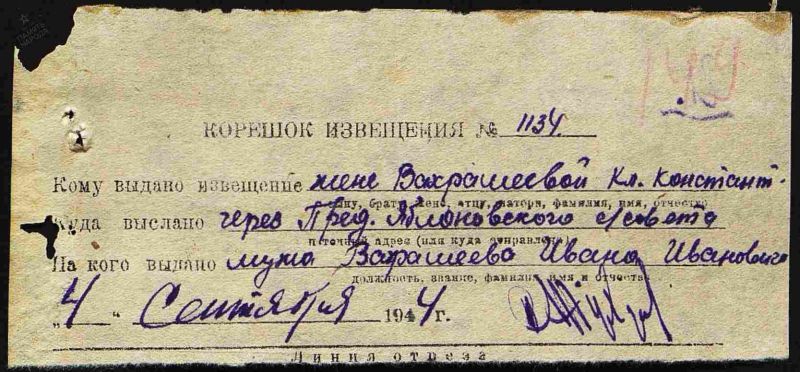 ПАМЯТЬ НАРОДА
КОРЕШОК ИЗВЕЩЕНИЯ № 1134.
Кому выдано извещение жене Вахрашеевой Кл. Констант.
сыну, брату, жене, отцу, матери, фамилия, имя, отчество
Куда выслано через Пред. Яблоновского с/совета
и точный адрес (или куда направлено)
На кого выдано мужа Вахрашеева Ивана Ивановича
должность, звание, фамилия, имя и отчество
„4“ Сентября 1944 г.
Линия отреза